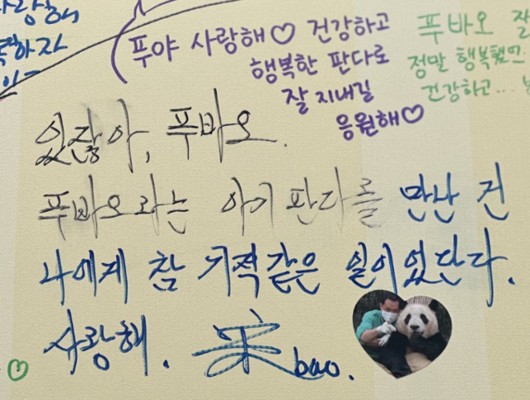 사랑해
푸야 사랑해♡ 건강하고
행복한 판다로
잘 지내길
응원해♡
푸바오 잘
정말 행복했
건강하고...
있잖아, 푸바오.
푸바오라는 아기 판다를 만난 건
나에게 참 기적같은 일이었단다.
사랑해. 宋bao.